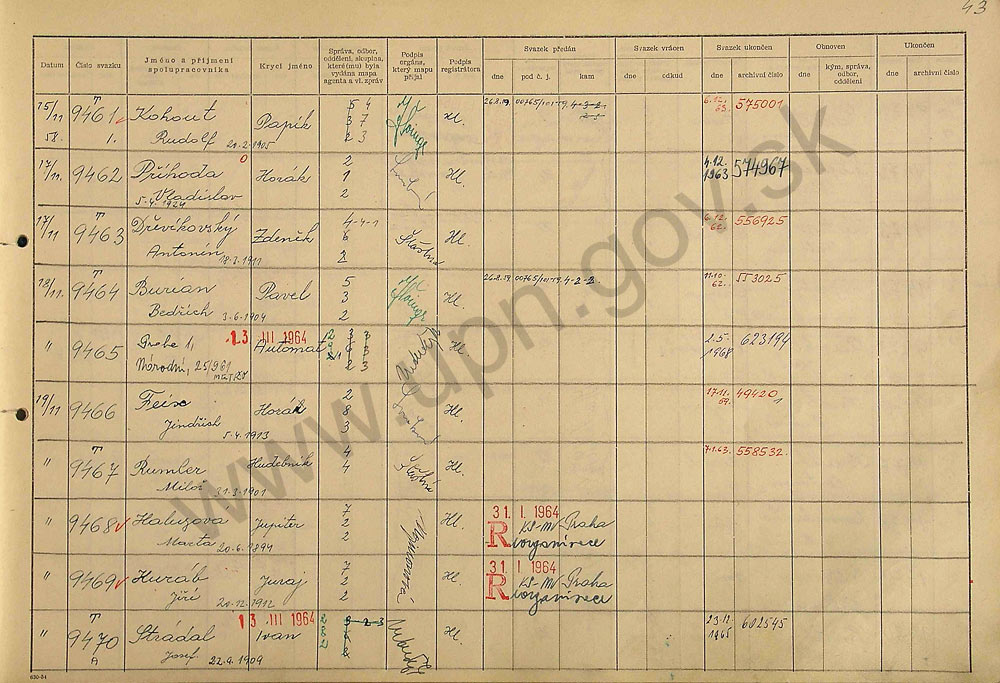 43
Datum
Číslo svazku
Jméno a příjmení
spolupracovníka
Krycí jméno
Správa, odbor,
oddělení, skupina,
které(mu) byla
vydána mapa
agenta a vl. zpráv
Podpis
orgánu,
který mapu
přijal
Podpis
registrátora
Svazek předán
dne pod č. j. kam
Svazek vrácen
dne odkud
Svazek ukončen
dne archivní číslo
Obnoven
dne kým, správa,
odbor,
oddělení
Ukončen
dne archivní číslo
15/11 58. T 9461 1. Kohout Papík 5 4 Hl. 26.8.59 00765/101-59 4-3-2 575001
Rudolf 20.2.1905 3 7
2 3
17/11. 9462 Příhoda Horák 2 Hl. 4.12. 1963 574967
Vladislav 1
5.4.1924 2
17/11 T 9463 Dřevíkovský Zdeněk 4-4-1 Šťastná Hl. 6.12. 62. 556925
Antonín 18.3.1911 6
2
18/11. T 9464 Burian Pavel 5 Hl. 26.8.59 00765/101-59 4-2-2 11.10. 62. 553025
Bedřich 3.6.1904 3
2
" 9465 13 III 1964 Automat Hl. 2.5. 1968 623194
Národní, 25/961
19/11 9466 Feix Horák 2 Hl. 17.11. 59. 49420
Jindřich 5.4.1913 8 1
3
" T 9467 Rumler Hudebník 4 Šťastná Hl. 7.1.63. 558532
Miloš 31.3.1901 4
" 9468 Haluzová Jupiter 7 Hl. 31 I 1964 KS-MV Praha
Marta 20.6.1894 2 Reorganisace
2
" 9469 Huráb Juraj 7 Hl 31 I 1964 KS-MV Praha
Jiří 20.12.1912 2 Reorganisace
2
" T 9470 A Strádal 13 III 1964 Ivan Hl. 23.12. 1965 602545
Josef 22.9.1909
630-54
www.upn.gov.sk